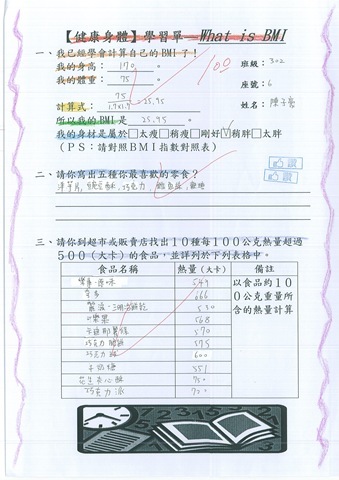 【健康身體】學習單—What is BMI
一、我已經學會計算自己的BMI了！
我的身高：170。
我的體重：75。
75
計算式：1.7×1.7=25.95
所以我的BMI是 25.95。
我的身材是屬於□太瘦□稍瘦□剛好☑稍胖□太胖
（PS：請對照BMI指數對照表）
100
班級：302
座號：6
姓名：陳子亮
讚
讚
二、請你寫出五種你最喜歡的零食？
洋芋片，巧克力，
三、請你到超市或販賣店找出10種每100公克熱量超過
500（大卡）的食品，並詳列於下列表格中。
食品名稱 熱量（大卡） 備註
549
666
530
568
卡迪那 570
巧克力 575
巧克力 600
牛奶糖 551
花生夾心酥 750
巧克力派 720
以食品約10
0公克重量所
含的熱量計算